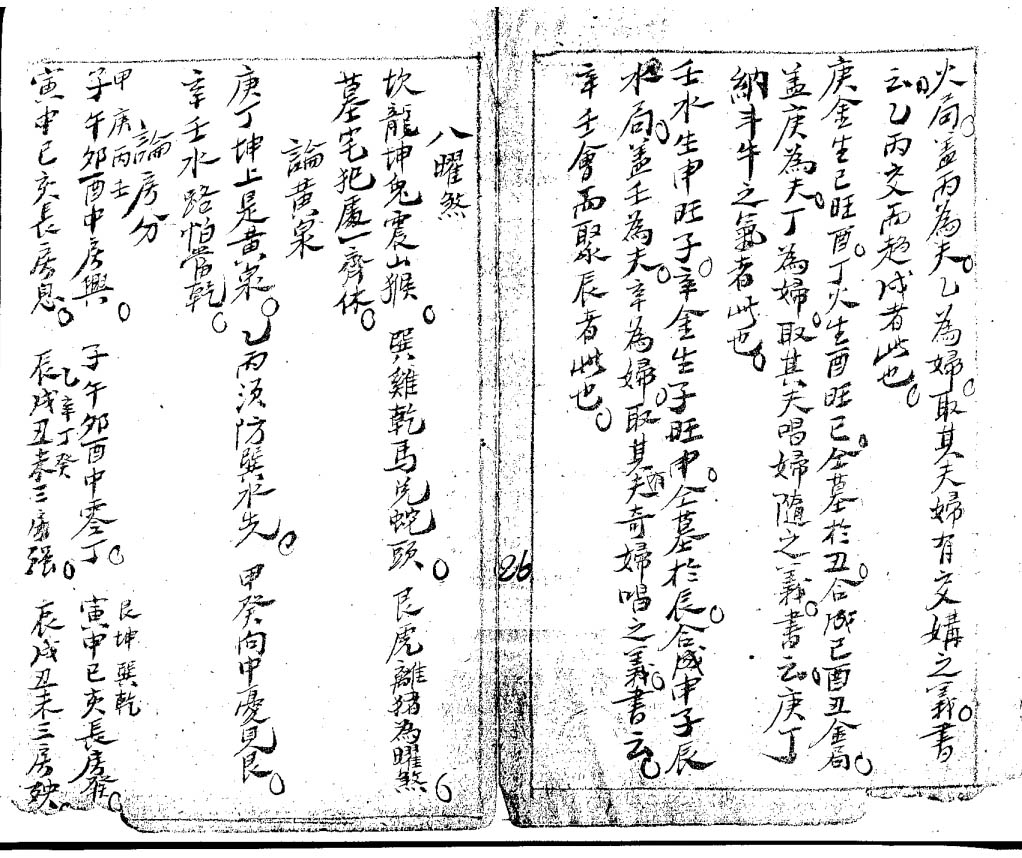 火局。蓋丙為夫。乙為婦。取其夫婦有交媾之義。書
云。乙丙交而趨戌者此也。
庚金生巳旺酉。丁火生酉旺巳。仝墓於丑。合成巳酉丑金局。
蓋庚為夫。丁為婦。取其夫唱婦隨之義。書云。庚丁
納斗牛之氣者此也。
壬水生申旺子。辛金生子旺申。仝墓於辰。合成申子辰
水局。蓋壬為夫。辛為婦。取其夫有奇婦唱之義。書云。
辛壬會而聚辰者此也。
26
八曜煞
坎龍坤兔震山猴。巽雞乾馬兌蛇頭。艮虎離猪為曜煞。
墓宅犯處一齊休。
論黃泉
庚丁坤上是黃泉。乙丙須防巽水先。甲癸向中憂見艮。
辛壬水路怕當乾。
論房分
甲庚丙壬
子午卯酉中房興。子午卯酉中零丁。寅申巳亥長房發。
乙辛丁癸
艮坤巽乾
寅申巳亥長房息。辰戌丑未三房强。辰戌丑未三房殃。